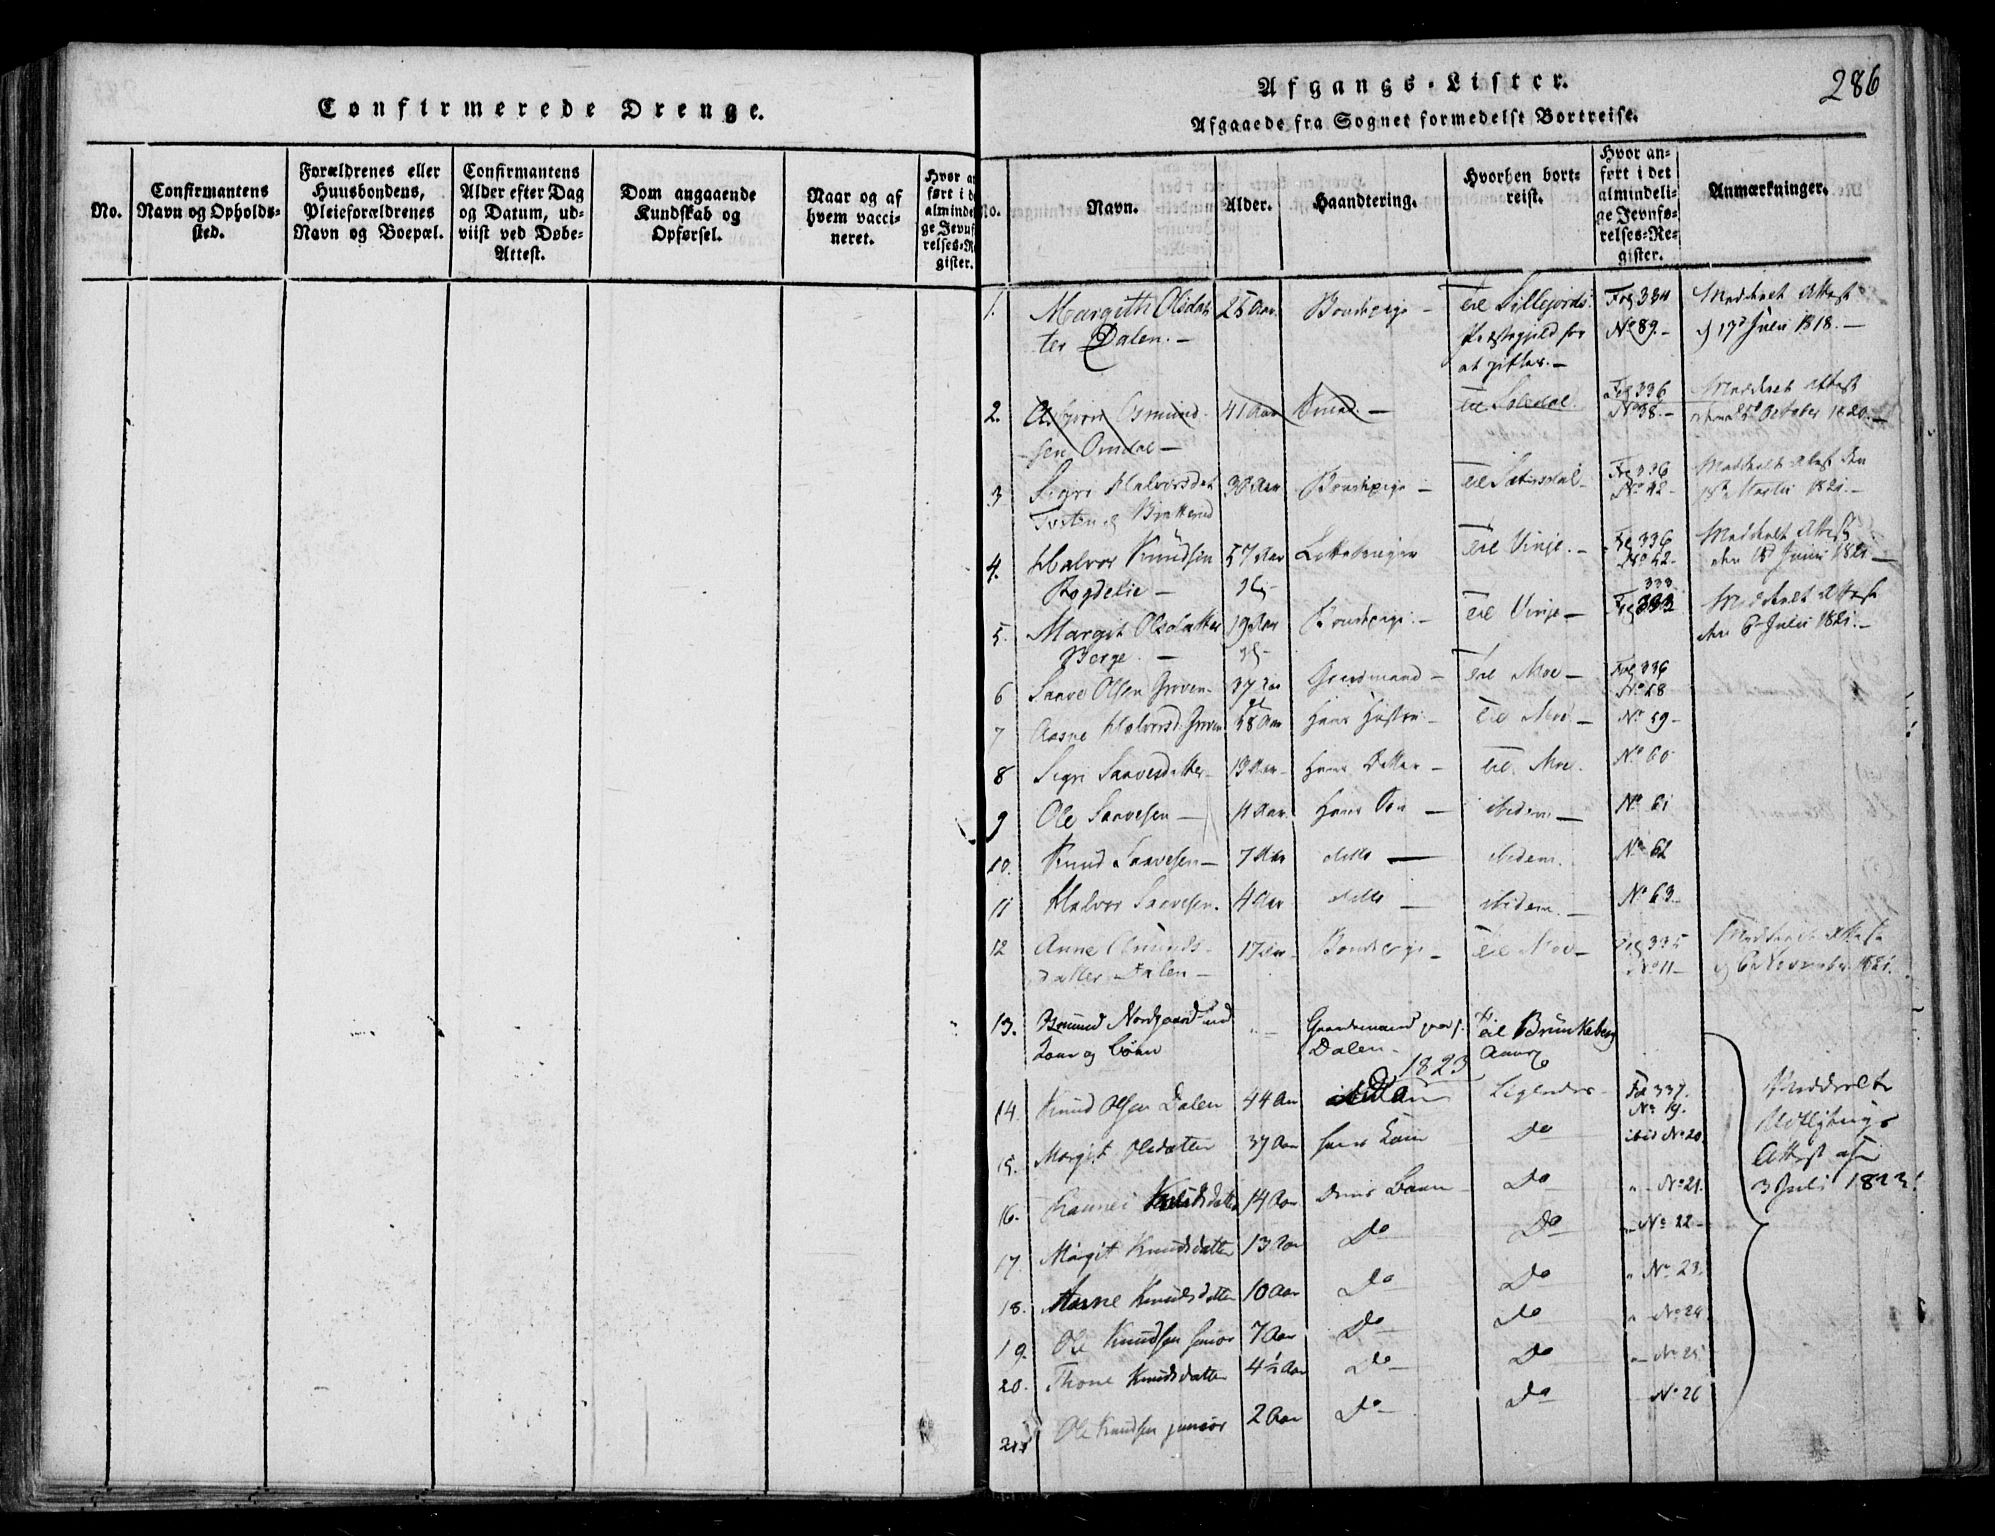 Confirmerede Drenge.
No.
Confirmantens
Navn og Opholds-
sted.
Forældrenes eller
Huusbondens,
Pleieforældrenes
Navn og Boepæl.
Confirmantens
Alder efter Dag
og Datum, ud-
viist ved Døbe-
Attest.
Dom angaaende
Kundskab og
Opførsel.
Naar og af
hvem vacci-
neret.
Hvor an-
ført i d
alminde
ge Jevnf
relses-R
gister.
286
Afgangs-Lister.
Afgaaede fra Sognet formedelst Bortreise.
No.
Navn.
Alder.
Haandtering.
Hvorhen bort-
reist.
Hvor an-
ført i det
almindeli-
ge Jevnfø-
relses-Re-
gister.
Anmærkninger.
1. Margith Olsdat 25 Aar. Bondepige – Til Sillejords Fol 334 Meddeelt Attest
ter Dalen. – Præstegjeld for No 89. – d 17d Juli 1818. –
at giftes. –
2. Asbjørn Osmund- 41 Aar – Til Fol 336 Meddeelt Attest
sen Omdal – No 38. – October 1820. –
3 Sigri Halvorsdat 30 Aar Bondepige – Til Sætersdal – Fol 336 Meddeelt Attest den
No 42 – Martii 1821. –
4. Halvor Knudsen 57 Aar Til Vinje. – Fol 336 Meddeelt Attest
Rogdelie – No 52 – den Junii 1821 –
5. Margit Olsdatter 19 Aar Bondepige. – Til Vinje – Fol 333 Meddeelt Attest
Berge. – den 6 Julii 1821. –
6 Saave Olsen Groven – 37 Aar Gaardmand – Til Moe – Fol 336
No 58
7 Aasne Halvorsd. Groven 38 Aar Hans Hustru – Til Moe – No 59 –
8 Sigri Saavesdatter – 13 Aar – Hans Datter – Til Moe. No 60
9 Ole Saavesen – 11 Aar. Hans Søn – ibidem – No 61
10. Knud Saavesen – 7 Aar ditto – ibidem. No 62
11 Halvor Saavesen. 4 Aar ditto – ibidem. – No 63
12 Anne Osmunds- 17 Aar – Bondepige – Til Moe – Fol 335 Meddeelt Attest
datter Dalen – No 11 – d 6 November 1821.
13. Nordgaard Gaardmand Til Brunkeberg
Kone og Børn Dalen – Annex
1823
14. Knud Olsen Dalen 44 Aar Ligeledes – Fol 337. Meddeelt
No 19.
15. Margit Olsdatter 37 Aar hans Kone Do ibid No 20 Attest af
16. Knudsdatter 14 Aar Deres Barn Do " – No 21. 3 Juli 1823.
17. Margit Knudsdatter 13 Aar Do Do " No 22 –
18. Aasne Knudsdatter 10 Aar Do Do " No 23.
19. Ole Knudsen senior 7 Aar Do Do " – No 24.
20. Thone Knudsdatter 4½ Aar Do Do " – No 25
21 Ole Knudsen junior 2 Aar Do Do – No 26